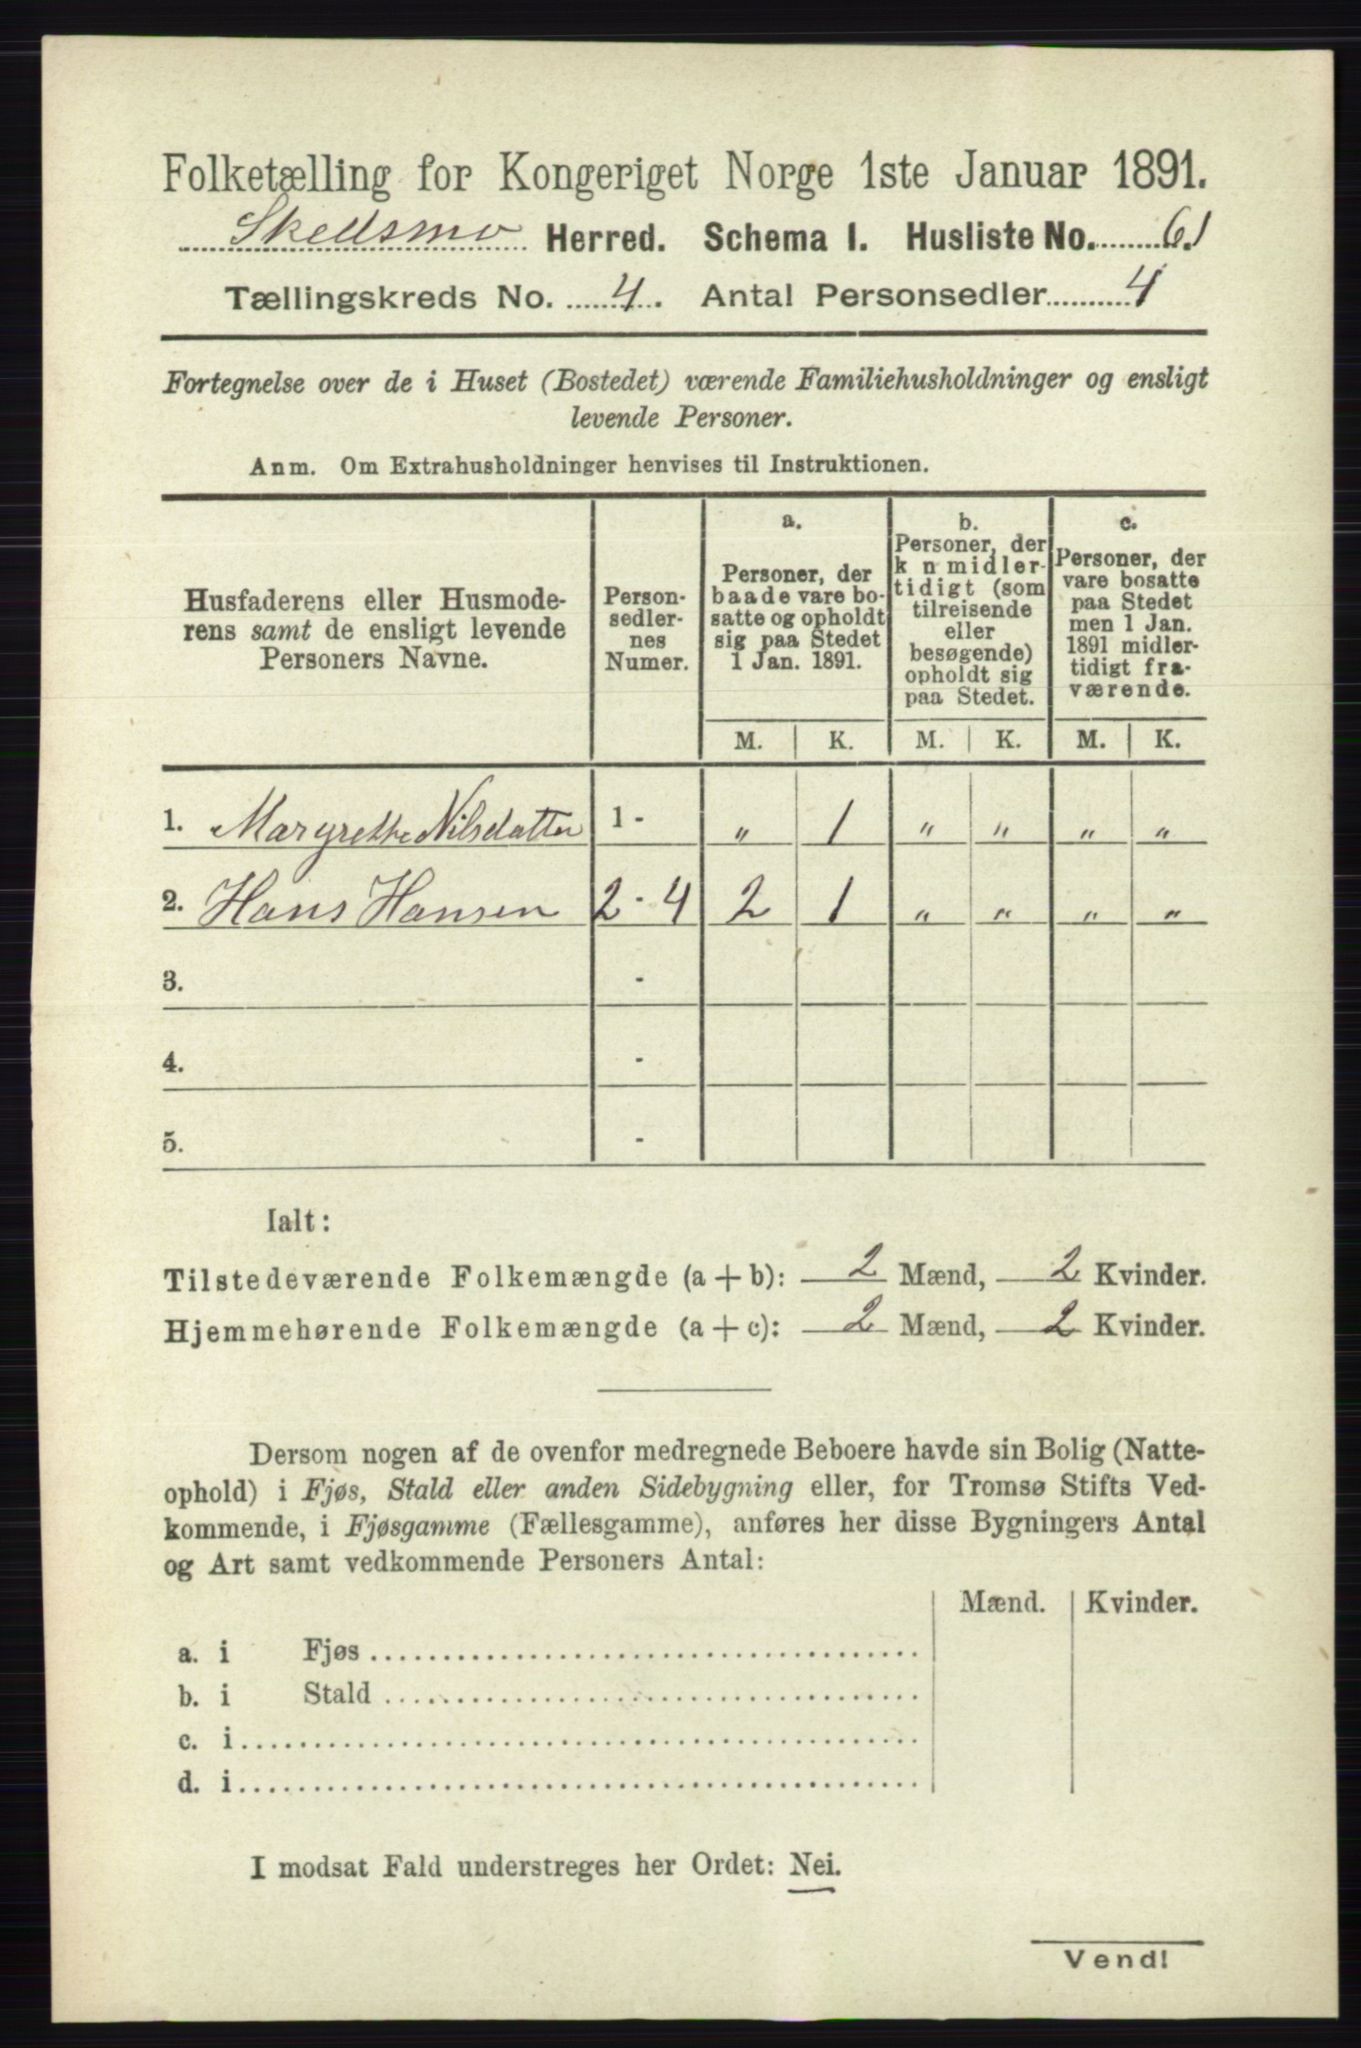 Folketælling for Kongeriget Norge 1ste Januar 1891.
Skedsmo Herred. Schema I. Husliste No. 61
Tællingskreds No. 4. Antal Personsedler 4
Fortegnelse over de i Huset (Bostedet) værende Familiehusholdninger og ensligt
levende Personer.
Anm. Om Extrahusholdninger henvises til Instruktionen.
Husfaderens eller Husmode-
rens samt de ensligt levende
Personers Navne.
Person-
sedler-
nes
Numer.
a.
Personer, der
baade vare bo-
satte og opholdt
sig paa Stedet
1 Jan. 1891.
b.
Personer, der
k n midler-
tidigt (som
tilreisende
eller
besøgende)
opholdt sig
paa Stedet.
c.
Personer, der
vare bosatte
paa Stedet
men 1 Jan.
1891 midler-
tidigt fra-
værende.
M. K. M. K. M. K.
1. Margrethe Nilsdatter 1 - „ 1 „ „ „ „
2. Hans Hansen 2 - 4 2 1 „ „ „ „
3. -
4. -
5. -
Ialt:
Tilstedeværende Folkemængde (a + b): 2 Mænd, 2 Kvinder.
Hjemmehørende Folkemængde (a + c): 2 Mænd, 2 Kvinder.
Dersom nogen af de ovenfor medregnede Beboere havde sin Bolig (Natte-
ophold) i Fjøs, Stald eller anden Sidebygning eller, for Tromsø Stifts Ved-
kommende, i Fjøsgamme (Fællesgamme), anføres her disse Bygningers Antal
og Art samt vedkommende Personers Antal:
Mænd. Kvinder.
a. i Fjøs
b. i Stald
c. i
d. i
I modsat Fald understreges her Ordet: Nei.
Vend!